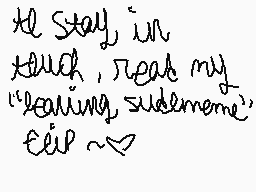 to stay in
touch, read my
"leaving sudomemo"
flip ~♡